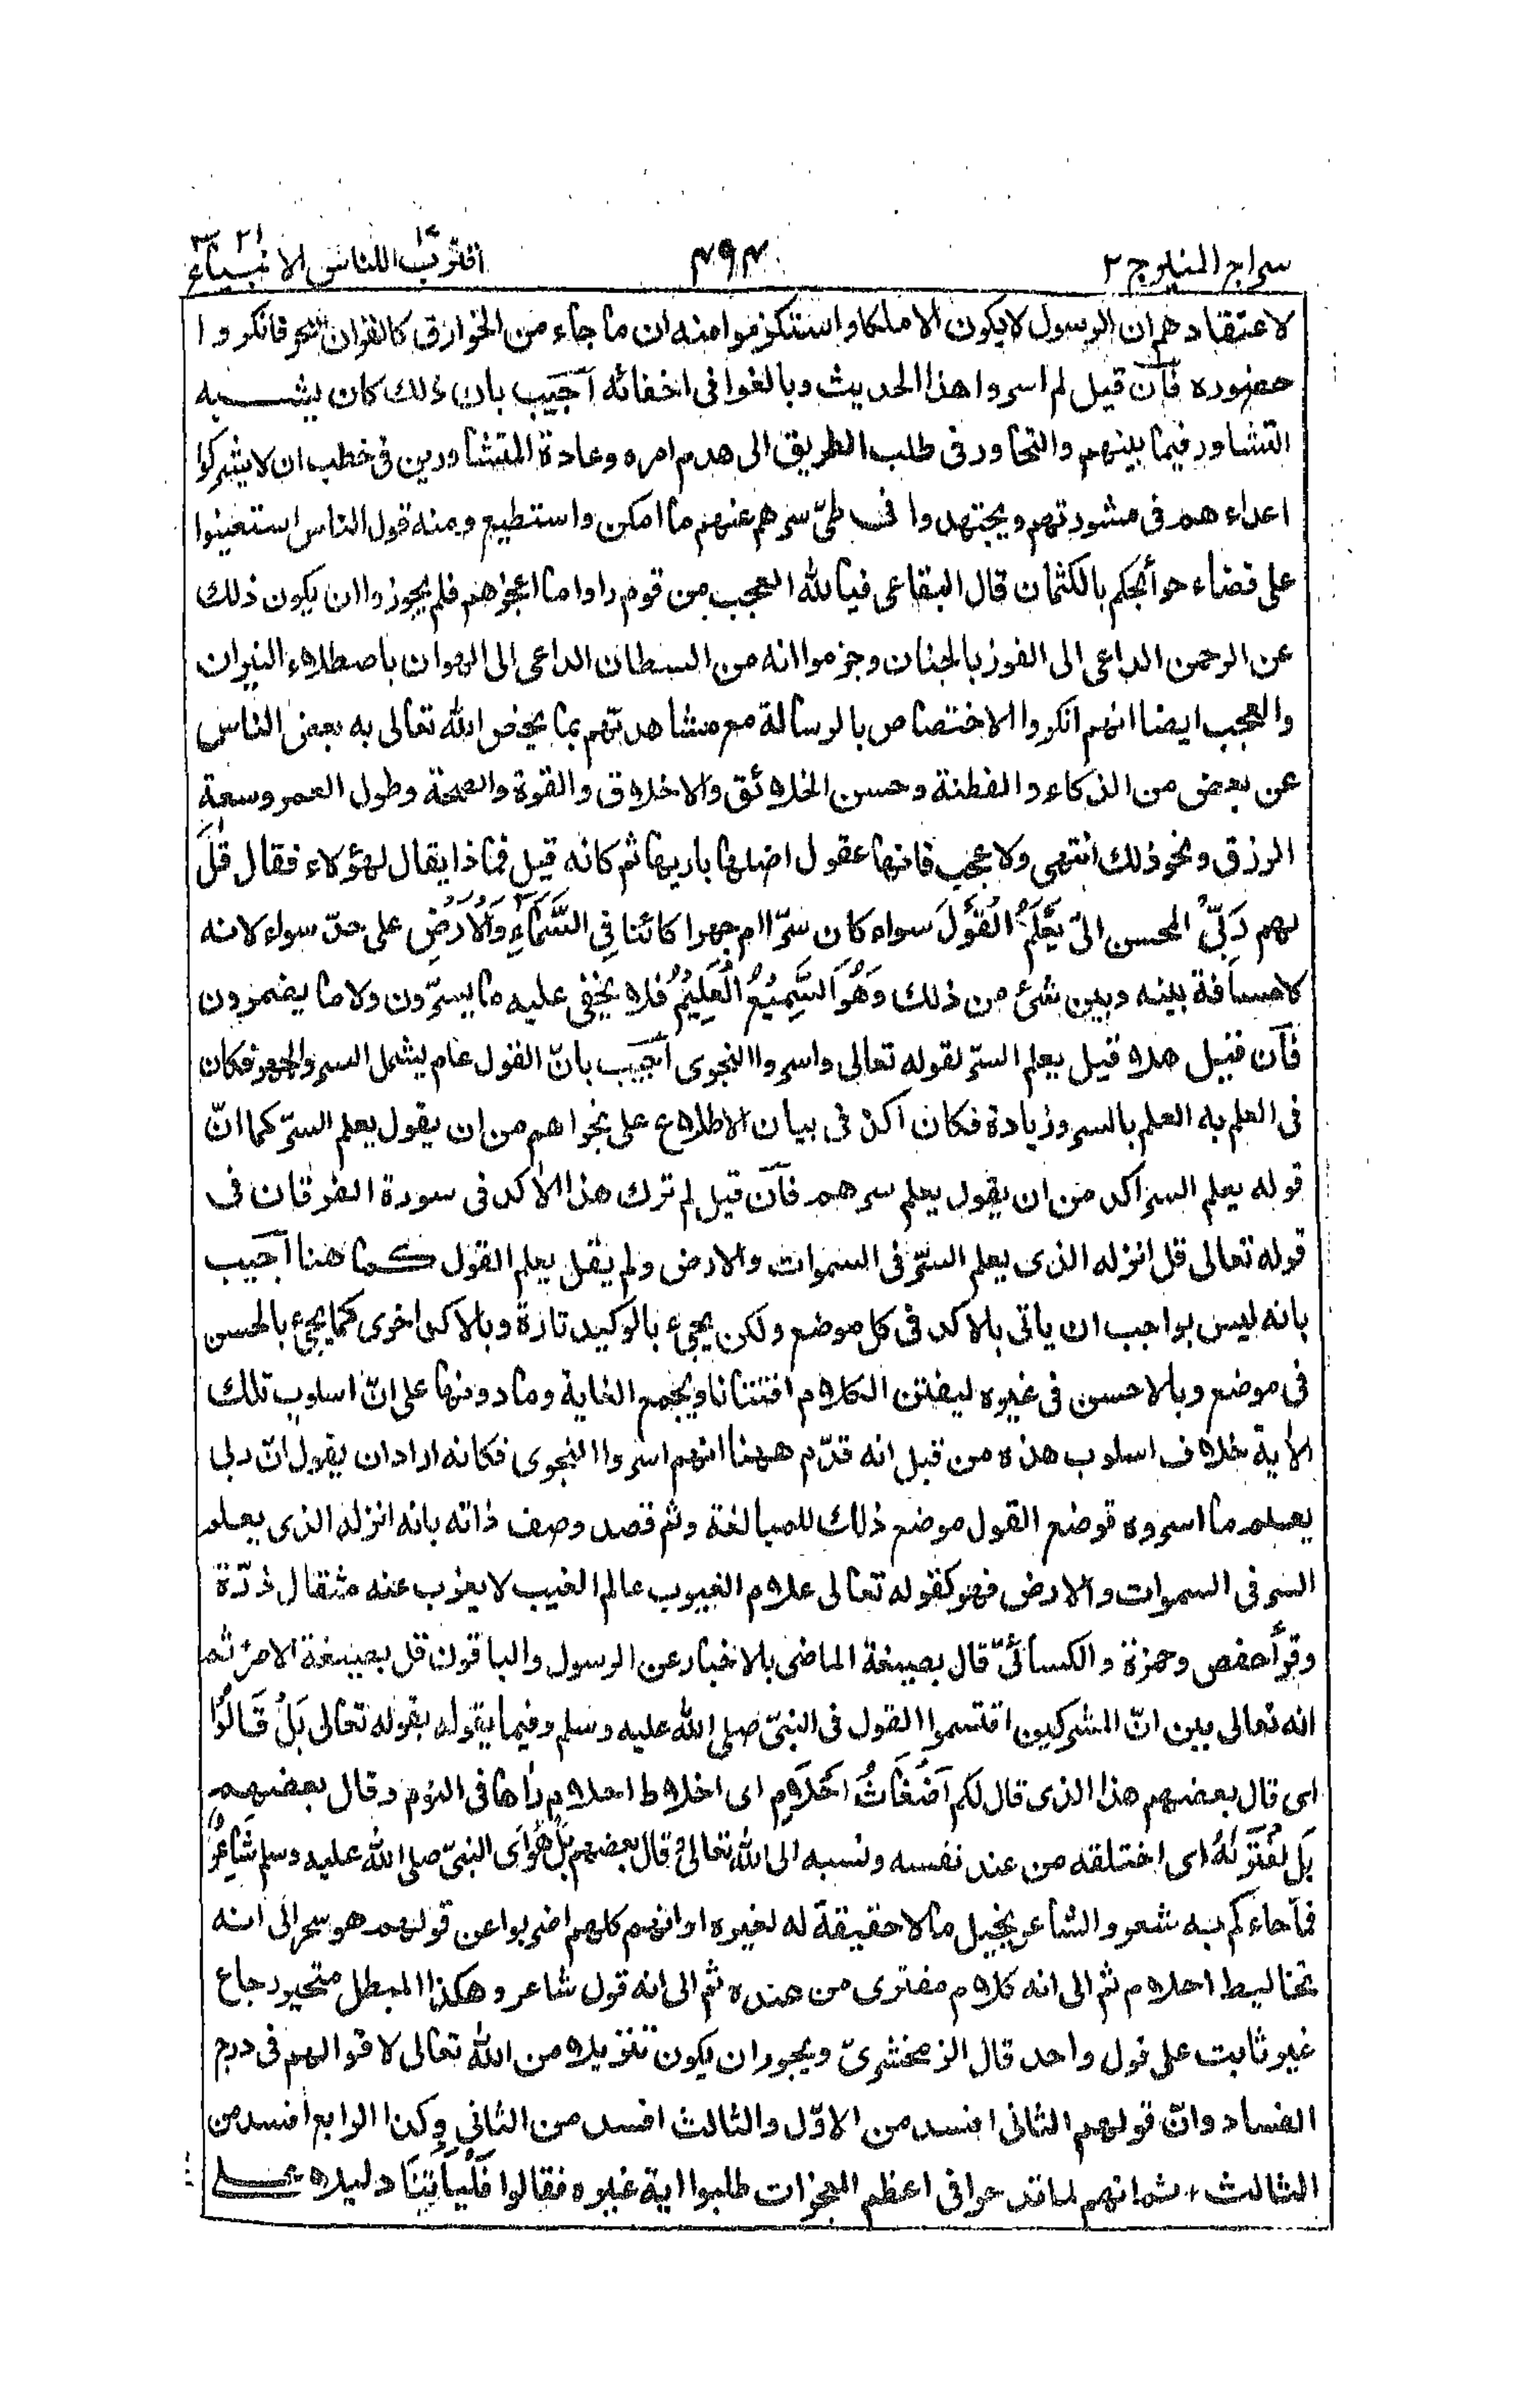 سراج المنير ج ٢ ٤٩٤ اقترب للناس ١٧ الانبياء ٢١
لاعتقادهم ان الرسول لا يكون الا ملكا واستلزموا منه ان ما جاء من الخوارق كالقران سحر فانكروا
حضوره فان قيل لم اسروا هذا الحديث وبالغوا فى اخفائه اجيب بان ذلك كان يشبه
التشاور فيما بينهم والتحاور فى طلب الطريق الى هدم امره وعادة المتشاورين فى خطب ان لا يشركوا
اعداءهم فى مشورتهم ويجتهدوا فى طىّ سرهم عنهم ما امكن واستطيع ومنه قول الناس استعينوا
على قضاء حوائجكم بالكتمان قال البقاعى فيا لله العجب من قوم راوا ما اعجزهم فلم يجوزوا ان يكون ذلك
عن الرحمن الداعى الى الفوز بالجنان وجزموا انه من الشيطان الداعى الى الهوان باصطلاء النيران
والعجب ايضا انهم انكروا الاختصاص بالرسالة مع مشاهدتهم بما يخص الله تعالى به بعض الناس
عن بعض من الذكاء والفطنة وحسن الخلائق والاخلاق والقوة والصحة وطول العمر وسعة
الرزق ونحو ذلك انتهى ولا عجب فانها عقول اضلها باريها ثم كانه قيل فماذا يقال لهؤلاء فقال قُلْ
لهم رَبِّىْ المحسن الىّ يَعْلَمُ الْقَوْلَ سواء كان سرّا ام جهرا كائنا فِى السَّمَآءِ وَالْاَرْضِ على حدّ سواء لانه
لا مسافة بينه وبين شئ من ذلك وَهُوَ السَّمِيْعُ الْعَلِيْمُ فلا يخفى عليه ما يسرّون ولا ما يضمرون
فان قيل هلا قيل يعلم السرّ لقوله تعالى واسروا النجوى اجيب بانّ القول عام يشمل السر والجهر فكان
فى العلم به العلم بالسر وزيادة فكان اكد فى بيان الاطلاع على نجواهم من ان يقول يعلم السرّ كما انّ
قوله يعلم السر اكد من ان يقول يعلم سرهم فان قيل لم ترك هذا الاكد فى سورة الفرقان فى
قوله تعالى قل انزله الذى يعلم السرّ فى السموات والارض ولم يقل يعلم القول كما هنا اجيب
بانه ليس بواجب ان ياتى بالاكد فى كل موضع ولكن يجىء بالوكيد تارة وبالاكد اخرى كما يجىء بالحسن
فى موضع وبالاحسن فى غيره ليفتن الكلام افتنانا ويجمع الغاية وما دونها على انّ اسلوب تلك
الاية خلاف اسلوب هذه من قبل انه قدّم ههنا انهم اسروا النجوى فكانه اراد ان يقول انّ ربى
يعلم ما اسروه فوضع القول موضع ذلك للمبالغة وثم قصد وصف ذاته بانه انزله الذى يعلم
السر فى السموات والارض فهو كقوله تعالى علام الغيوب عالم الغيب لا يعزب عنه مثقال ذرّة
وقرأ حفص وحمزة والكسائىّ قال بصيغة الماضى بالاخبار عن الرسول والباقون قل بصيغة الامر ثم
انه تعالى بين انّ المشركين اقتسموا القول فى النبىّ صلى الله عليه وسلم وفيما يقوله بقوله تعالى بَلْ قَالُوْٓا
اى قال بعضهم هذا الذى قال لكم اَضْغَاثُ اَحْلَامٍ اى اخلاط احلام راها فى النوم وقال بعضهم
بَلِ افْتَرٰىهُ اى اختلقه من عند نفسه ونسبه الى الله تعالى و قال بعضهم بَلْ هُوَ اى النبىّ صلى الله عليه وسلم شَاعِرٌ
فما جاءكم به شعر والشاعر يخيل ما لا حقيقة له لغيره او انهم كلهم اضربوا عن قولهم هو سحر الى انه
تخاليط احلام ثم الى انه كلام مفترى من عنده ثم الى انه قول شاعر وهكذا المبطل متحير رجاع
غير ثابت على قول واحد قال الزمخشرىّ ويجوز ان يكون تنزيلا من الله تعالى لاقوالهم فى درج
الفساد وانّ قولهم الثانى افسد من الاوّل والثالث افسد من الثانى وكذا الرابع افسد من
الثالث ثم انهم لما قدحوا فى اعظم المعجزات طلبوا اية غيره فقالوا فَلْيَأْتِنَا دليلا على